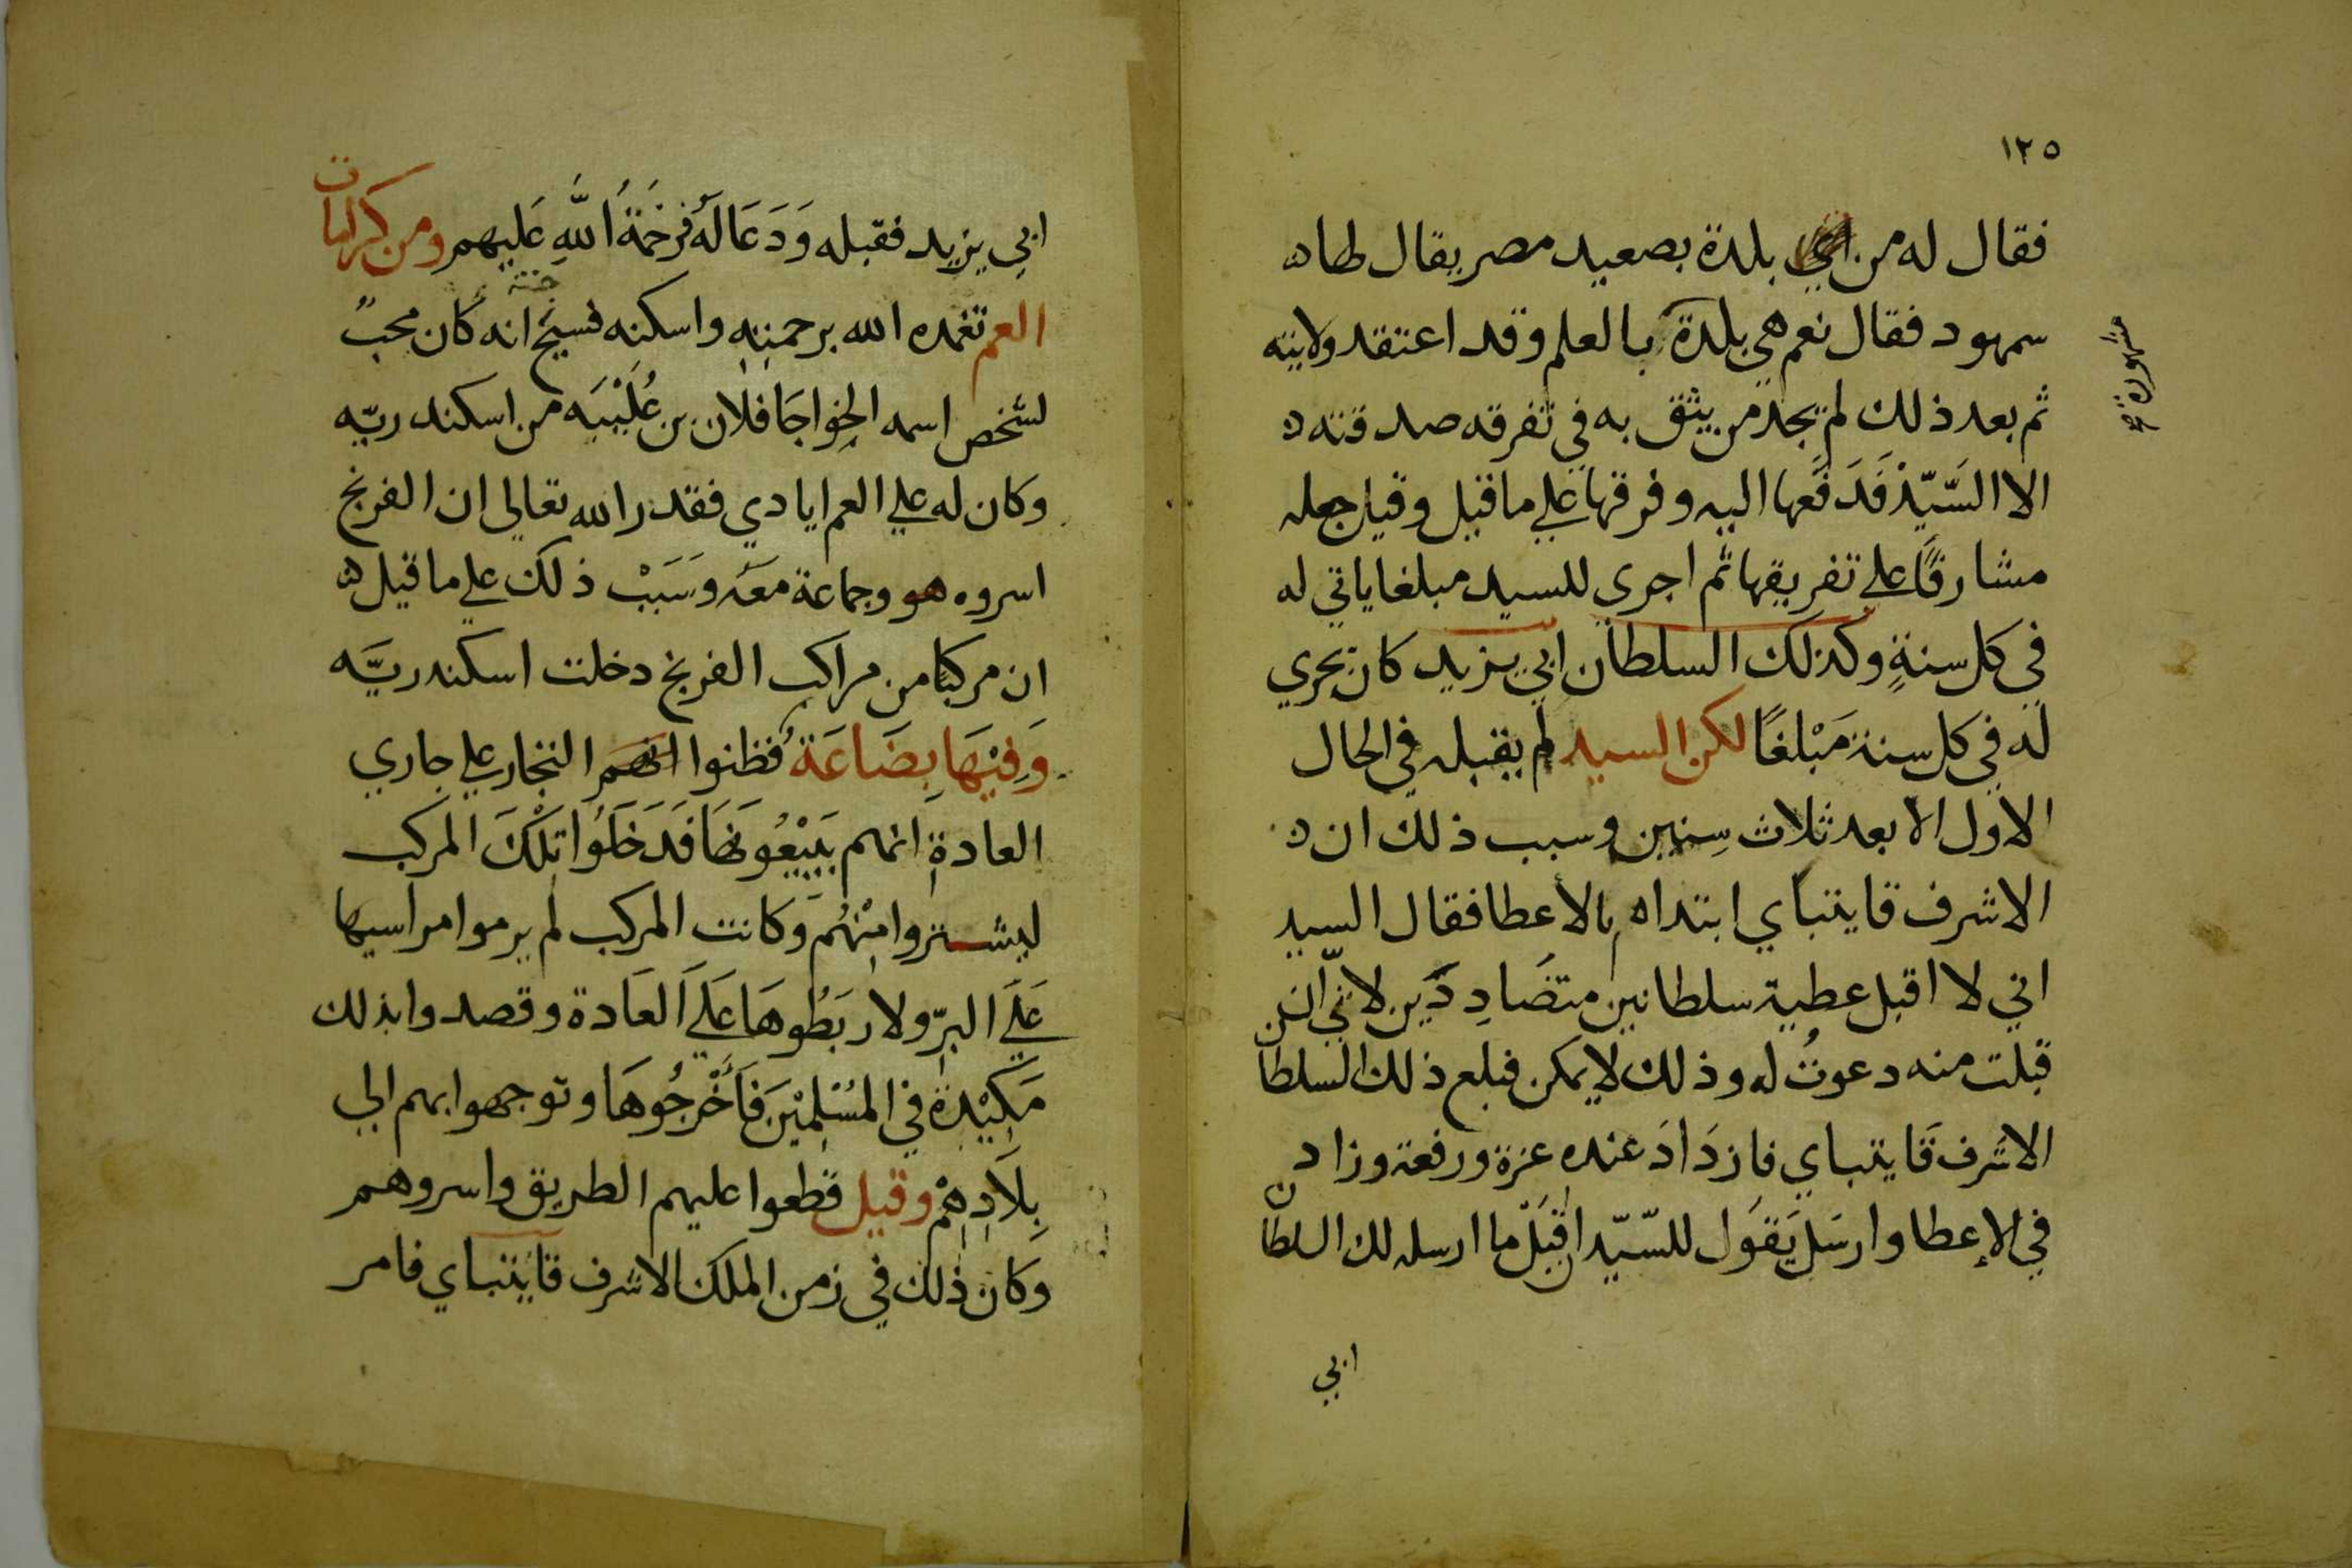 ١٢٥
فقال له من اي بلدة بصعيد مصر يقال لها ه
سمهود فقال نعم هي بلدة بالعلم وقد اعتقد ولايته
مشهورة
ثم بعد ذلك لم يجد من يثق به في تفرقه صدقته ه
الا السَّيّدْ فَدَفَعها اليه وفرقها علي ما قيل وقيل جعله
مشارفًا علي تفريقها ثم اجرى للسيد مبلغا ياتي له
في كل سنةٍ وكذلك السلطان ابي يزيد كان يجري
له في كل سنة مَبْلغًا لكن السيد لم يقبله في الحال
الاول الا بعد ثلاث سِنين وسبب ذلك ان ه
الاشرف قايتباي ابتداه بالاعطا فقال السيد
اني لا اقبل عطية سلطانين متضَادِدَين لانّي ان
قبلت منه دعوتُ له وذلك لا يمكن فبلع ذلك السلطان
الاشرف قَايتباي فازدَادَ عنده عزة ورفعة وزاد
في الإعطا وارسَل يَقوَل للسّيّد اقبَلْ ما ارسله لك السلطان
ابي
ابي يزيد فقبله وَدَعَا لَهُ فرَحْمَةُ اللَّهِ عَليهم ومن كرامات
العم تغمده الله برحمته واسكنه فسيح جنته انه كان محبً
لشخص اسمه الخواجَا فلان بن عُلَيْبَيه من اسكندريّه
وكان له علي العم ايادي فقدر الله تعالى ان الفرنج
اسروه هو وجماعة معَه وسَبَبْ ذلك علي ما قيل ه
ان مركبًا من مراكب الفرنج دخلت اسكندريَّه
وَفِيْهَا بِضَاعَةُ فظنوا انهم التجار علي جاري
العادةِ انهم يَبيْعُونهَا فَدَخَلُوا تِلْكَ المركب
ليشتروا مِنْهُم وكانت المركب لم يرموا مراسيها
عَلَي البرّ ولا ربَطُوهَا عَلَي العَادة وقصدوا بذلك
مَكِيْدة في المُسْلِميْنَ فأَخْرجُوهَا وتوجهوا بهم الي
بِلَادِهِمْ وقيل قطعوا عليهم الطريق واسروهم
وكان ذلك في زمن الملك الاشرف قايتباي فامر